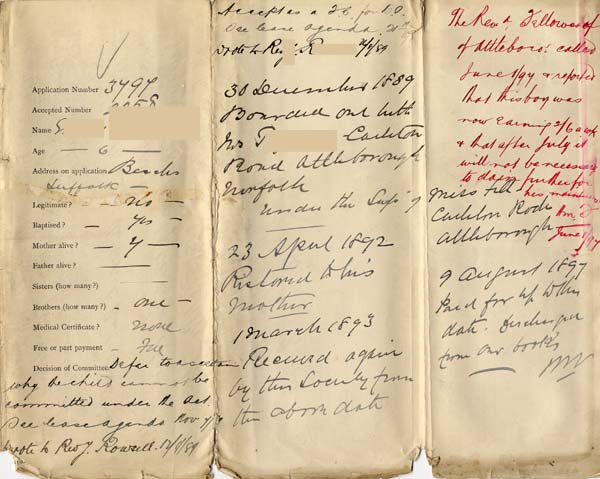 Application Number 3797
Accepted Number
Name G.
Age — 6 —
Address on application Beccles
Suffolk —
Legitimate? — No —
Baptised? — Yes —
Mother alive? — y —
Father alive? —
Sisters (how many?) —
Brothers (how many?) — one —
Medical Certificate? none
Free or part payment — Free
Decision of Committee Defer to ascertain
why the child cannot be
committed under the Act
See case agenda Nov
Wrote to Revd J. Rowsell.
Accepted as a F.C. for B.O.
See case agenda.
Wrote to Rev J. R
30 December 1889
Boarded out with
Mrs T Carleton
Road Attleborough
Norfolk
under the Sup. of
23 April 1892
Restored to his
Mother
1 March 1893
Received again
by this Society from
the above date
The Revd. Fellowes
of Attleboro' called
June 1/97 & reported
that this boy was
now earning 2/6 a wk
& that after July it
will not be necessary
to pay further for
his
Miss
Carleton Rode
Attleborough
June 1/97
9 August 1897
Paid for up to this
date. Discharged
from our books